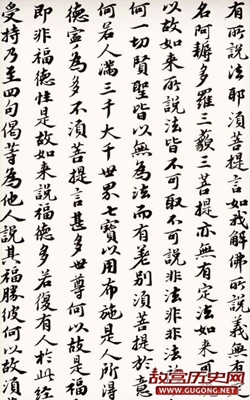 有所說法耶須菩提言如我解佛所說義無有
名阿耨多羅三藐三菩提亦無有定法如來可
以故如來所說法皆不可取不可說非法非非法
何一切賢聖皆以無為法而有差別須菩提於意
何若人滿三千大千世界七寶以用布施是人所得
德寧為多不須菩提言甚多世尊何以故是福
即非福德性是故如來說福德多若復有人於此經
受持乃至四句偈等為他人說其福勝彼何以故須
故宫历史网
www.GUGONG.net